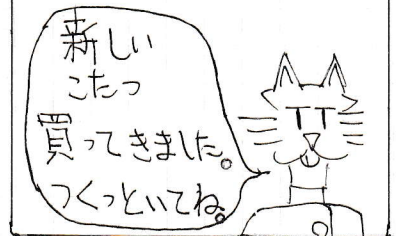 新しい
こたつ
買ってきました。
つくっといてね。